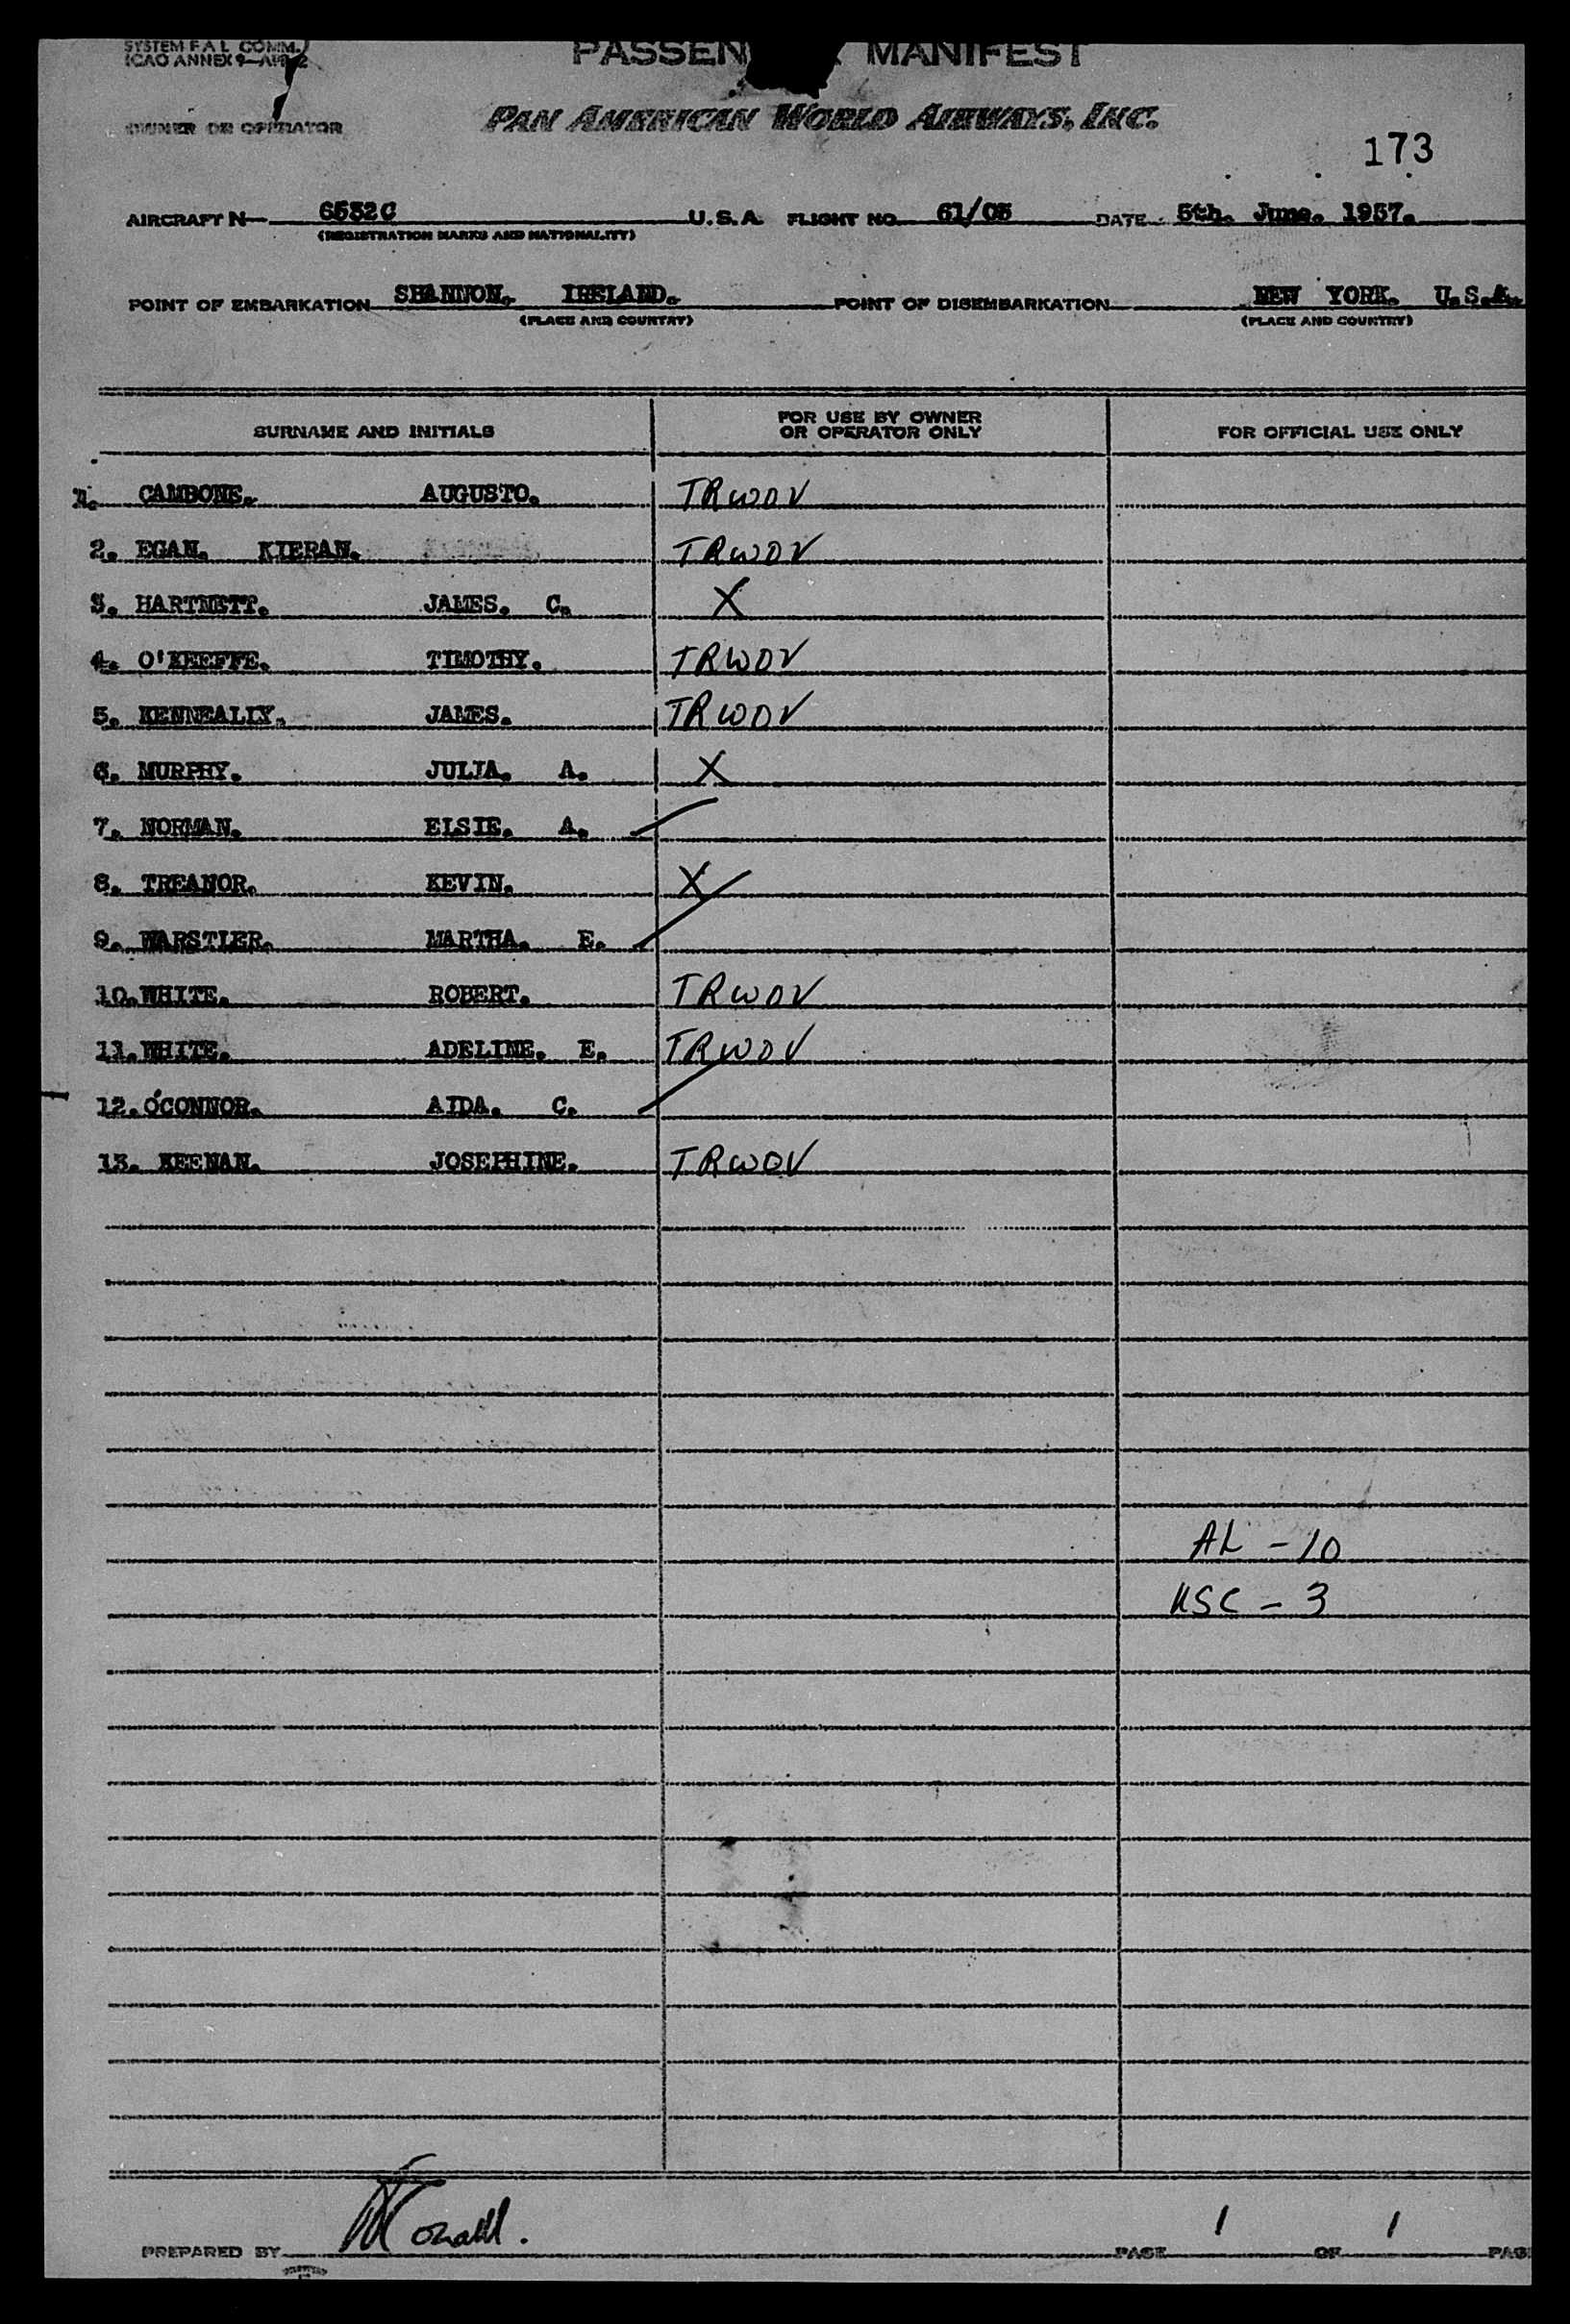 SYSTEM F A L COMM.
ICAO ANNEX 9—APP 2
PASSEN MANIFEST
OWNER OR OPERATOR PAN AMERICAN WORLD AIRWAYS, INC.
173
AIRCRAFT N— 6532C U.S.A. FLIGHT NO. 61/05 DATE 5th. June. 1957.
(REGISTRATION MARKS AND NATIONALITY)
POINT OF EMBARKATION SHANNON. IRELAND. POINT OF DISEMBARKATION NEW YORK. U.S.A.
(PLACE AND COUNTRY) (PLACE AND COUNTRY)
SURNAME AND INITIALS FOR USE BY OWNER OR OPERATOR ONLY FOR OFFICIAL USE ONLY
1. CAMBONE. AUGUSTO. TRWOV
2. EGAN. KIERAN. TRWOV
3. HARTNETT. JAMES. C. X
4. O'KEEFFE. TIMOTHY. TRWOV
5. KENNEALLY. JAMES. TRWOV
6. MURPHY. JULIA. A. X
7. NORMAN. ELSIE. A.
8. TREANOR. KEVIN. X
9. WARSTLER. MARTHA. E.
10. WHITE. ROBERT. TRWOV
11. WHITE. ADELINE. E. TRWOV
12. O'CONNOR. AIDA. C.
13. KEENAN. JOSEPHINE. TRWOV
AL - 10
USC - 3
PREPARED BY PAGE 1 OF 1 PAG